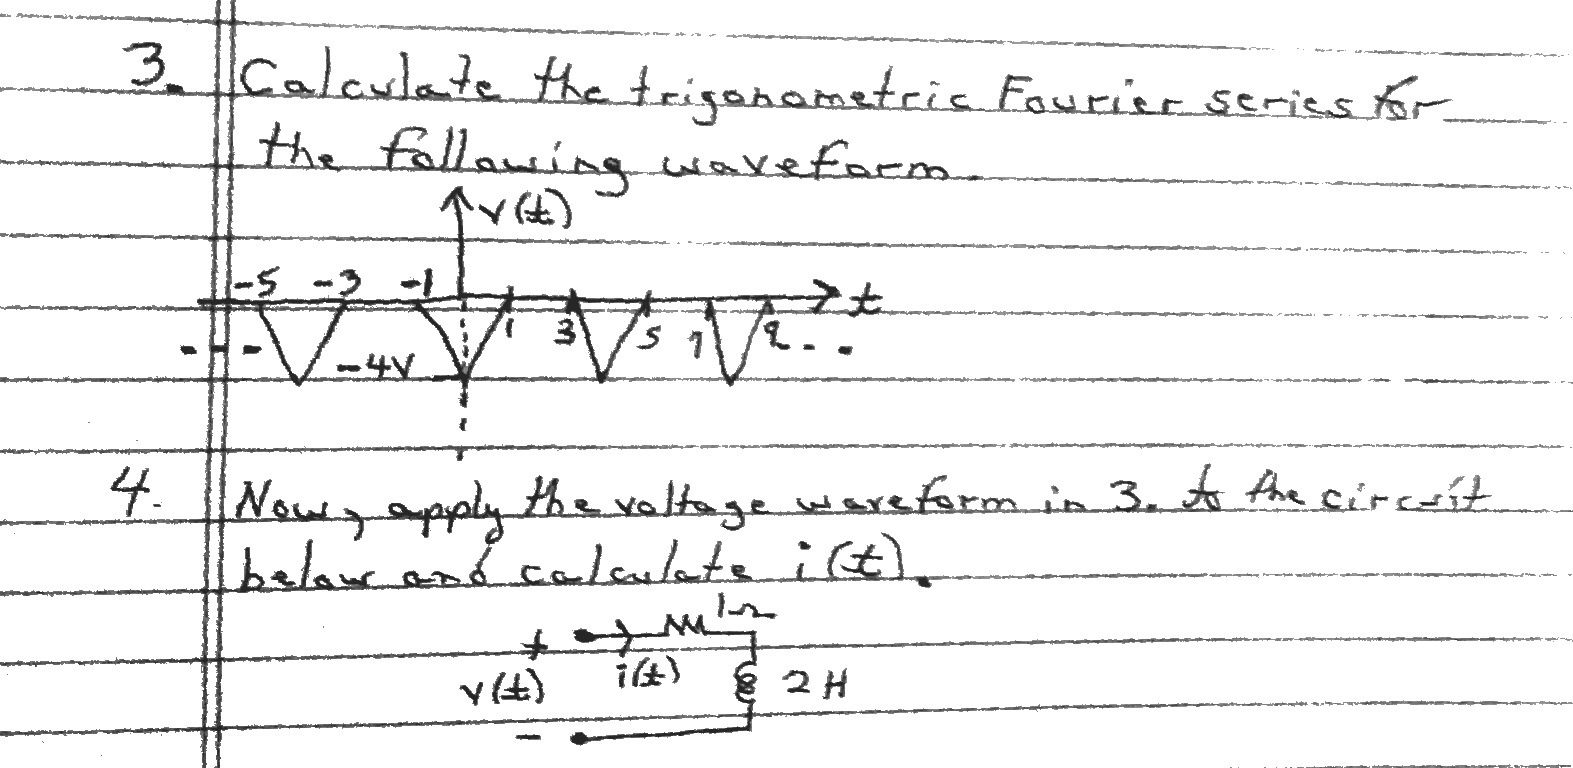 3. Calculate the trigonometric Fourier series for
the following waveform.
v(t)
-5 -3 -1 t
1 3 5 7 9
- - - -4V - - -
4. Now, apply the voltage waveform in 3. to the circuit
below and calculate i(t).
1Ω
+
v(t) i(t) 2 H
-